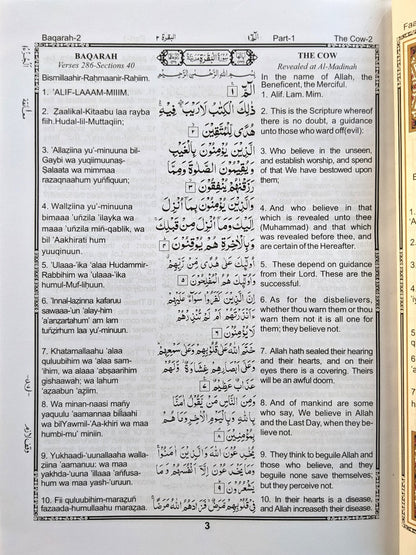 Baqarah-2
البقرة ٢
الٓمّٓ ١
Part-1
The Cow-2
BAQARAH
Verses 286-Sections 40
سُوْرَةُ الْبَقَرَةِ مَدَنِيَّةٌ
THE COW
Revealed at Al-Madinah
Bismillaahir-Raḥmaanir-Raḥiim.
بِسْمِ اللّٰهِ الرَّحْمٰنِ الرَّحِيْمِ
In the name of Allah, the
Beneficent, the Merciful.
1. 'ALIF-LAAAM-MIIIM.
الٓمّٓ ۚ ١
1. Alif. Lam. Mim.
2. Zaalikal-Kitaabu laa rayba
fiih.Hudal-lil-Muttaqiin;
ذٰلِكَ الْكِتٰبُ لَا رَيْبَ ۛ فِيْهِ ۛ
هُدًى لِّلْمُتَّقِيْنَ ٢
2. This is the Scripture whereof
there is no doubt, a guidance
unto those who ward off(evil):
3. 'Allaẓiina yu'-minuuna bil-
Gaybi wa yuqiimuunaṣ-
Ṣalaata wa mimmaa
razaqnaahum yuñfiquun;
الَّذِيْنَ يُؤْمِنُوْنَ بِالْغَيْبِ
وَيُقِيْمُوْنَ الصَّلٰوةَ وَمِمَّا
رَزَقْنٰهُمْ يُنْفِقُوْنَ ٣
3. Who believe in the unseen,
and establish worship, and spend
of that We have bestowed upon
them;
4. Wallẓiina yu'-minuuna
bimaaa 'uñzila 'ilayka wa
maaa 'uñzila miñ-qablik, wa
bil 'Aakhirati hum
yuuqinuun.
وَالَّذِيْنَ يُؤْمِنُوْنَ بِمَآ اُنْزِلَ
اِلَيْكَ وَمَآ اُنْزِلَ مِنْ قَبْلِكَ ۚ
وَبِالْاٰخِرَةِ هُمْ يُوْقِنُوْنَ ٤
4. And who believe in that
which is revealed unto thee
(Muhammad) and that which
was revealed before thee, and
are certain of the Hereafter.
5. 'Ulaaa-'ika 'alaa Hudam-mir-
Rabbihim wa 'ulaaa-'ika
humul-Muf-liḥuun.
اُولٰٓئِكَ عَلٰى هُدًى مِّنْ رَّبِّهِمْ ۙ
وَاُولٰٓئِكَ هُمُ الْمُفْلِحُوْنَ ٥
5. These depend on guidance
from their Lord. These are the
successful.
6. 'Innal-laẓinna kafaruu
sawaaa-'un 'alay-him
'a'anẓartahum' am lam
tuñẓirhum laa yu'-minuun.
اِنَّ الَّذِيْنَ كَفَرُوْا سَوَآءٌ عَلَيْهِمْ
ءَاَنْذَرْتَهُمْ اَمْ لَمْ تُنْذِرْهُمْ
لَا يُؤْمِنُوْنَ ٦
6. As for the disbelievers,
whether thou warn them or thou
warn them not it is all one for
them; they believe not.
7. Khatamallaahu 'alaa
quuluubihim wa 'alaa sam-
'ihim, wa alaaa 'abṣaarihim
gishaawah; wa lahum
'aẓaabun 'aẓiim.
خَتَمَ اللّٰهُ عَلٰى قُلُوْبِهِمْ وَعَلٰى سَمْعِهِمْ ؕ
وَعَلٰٓى اَبْصَارِهِمْ غِشَاوَةٌ ۫ وَّلَهُمْ
عَذَابٌ عَظِيْمٌ ٧
7. Allah hath sealed their hearing
and their hearts, and on their
eyes there is a covering. Theirs
will be an awful doom.
8. Wa minan-naasi mañy
yaquulu 'aamannaa billaahi
wa bilYawmil-'Aa-khiri wa maa
humbi-mu' miniin.
وَمِنَ النَّاسِ مَنْ يَّقُوْلُ اٰمَنَّا
بِاللّٰهِ وَبِالْيَوْمِ الْاٰخِرِ وَمَا هُمْ
بِمُؤْمِنِيْنَ ٨
8. And of mankind are some
who say, We believe in Allah
and the Last Day, when they be-
lieve not.
9. Yukhaadi-'uunallaaha walla-
ẓiina 'aamanuu: wa maa
yakhda-'uuna 'illaaa 'añfusa-
hum wa maa yash-'uruun.
يُخٰدِعُوْنَ اللّٰهَ وَالَّذِيْنَ اٰمَنُوْا ۚ
وَمَا يَخْدَعُوْنَ اِلَّآ اَنْفُسَهُمْ وَمَا
يَشْعُرُوْنَ ٩
9. They think to beguile Allah and
those who believe, and they
beguile none save themselves;
but they perceive not.
10. Fii quluubihim-maraẓuñ
fazaada-humullaahu maraẓaa.
فِيْ قُلُوْبِهِمْ مَّرَضٌ ۙ فَزَادَهُمُ اللّٰهُ مَرَضًا ۚ
10. In their hearts is a disease,
and Allah increaseth their disease.
3